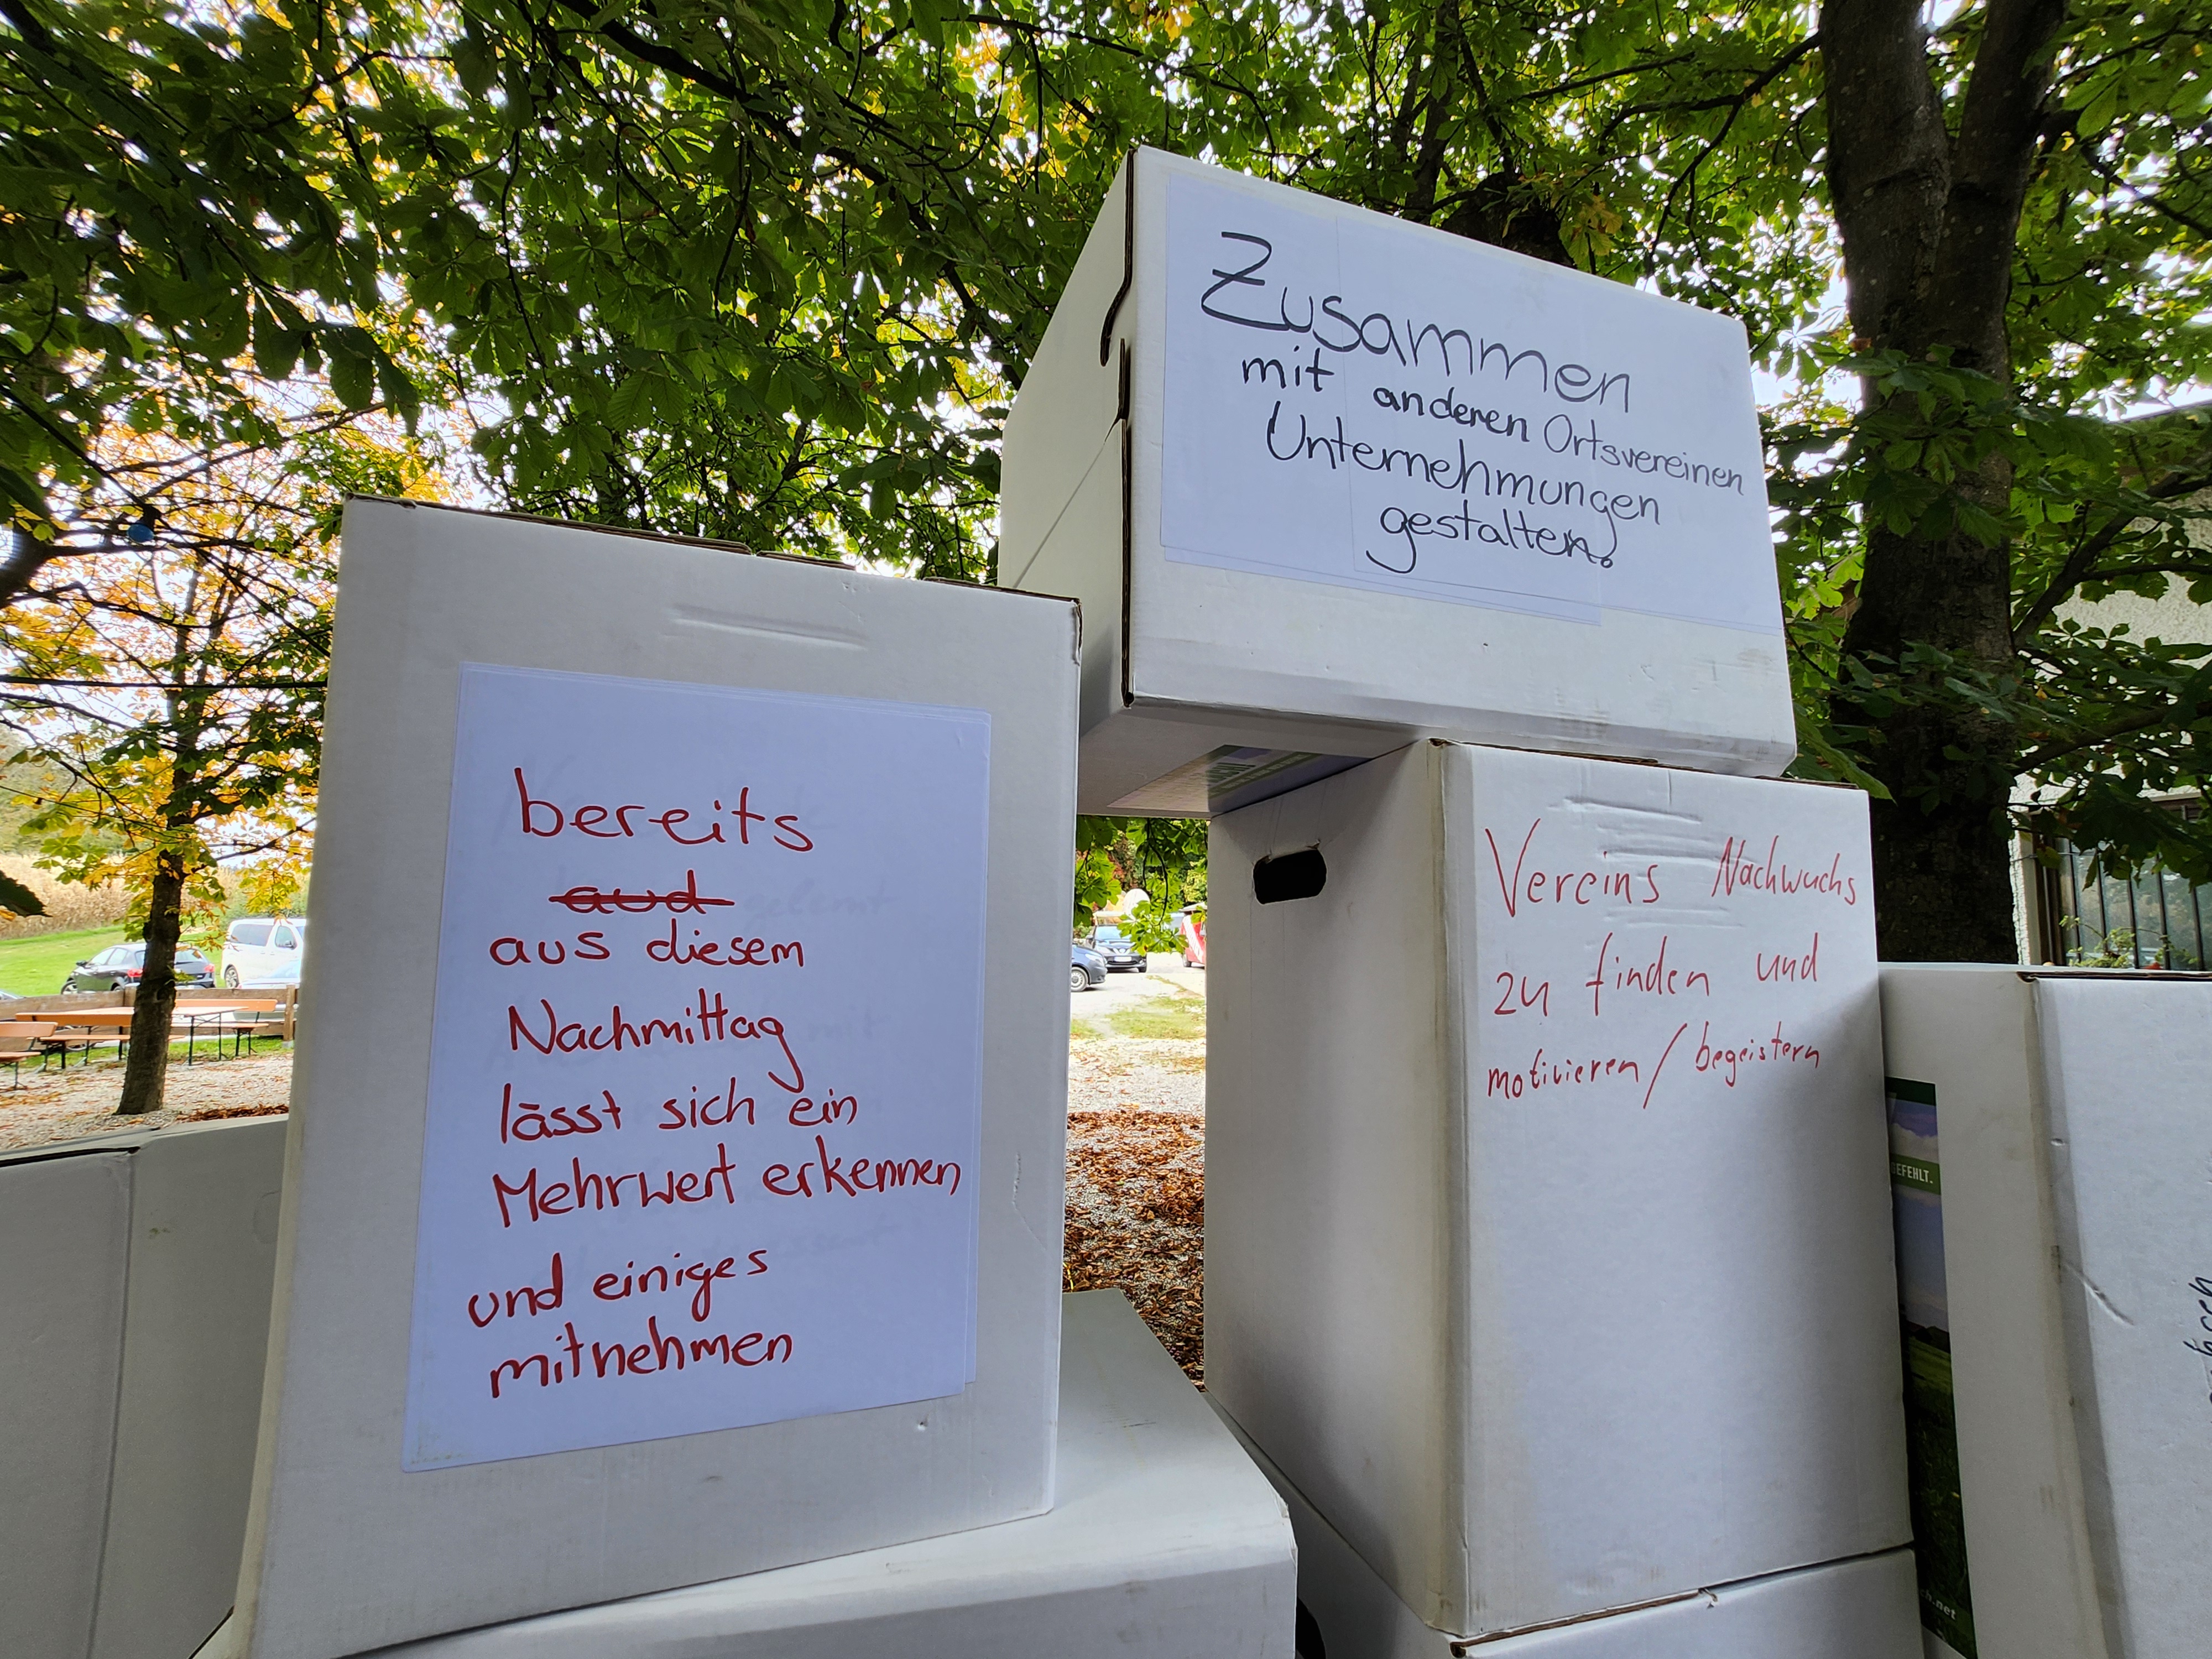 Zusammen
mit anderen Ortsvereinen
Unternehmungen
gestalten.
bereits
aud
aus diesem
Nachmittag
lässt sich ein
Mehrwert erkennen
und einiges
mitnehmen
Vereins Nachwuchs
zu finden und
motivieren / begeistern
GEFEHLT.
ch.net